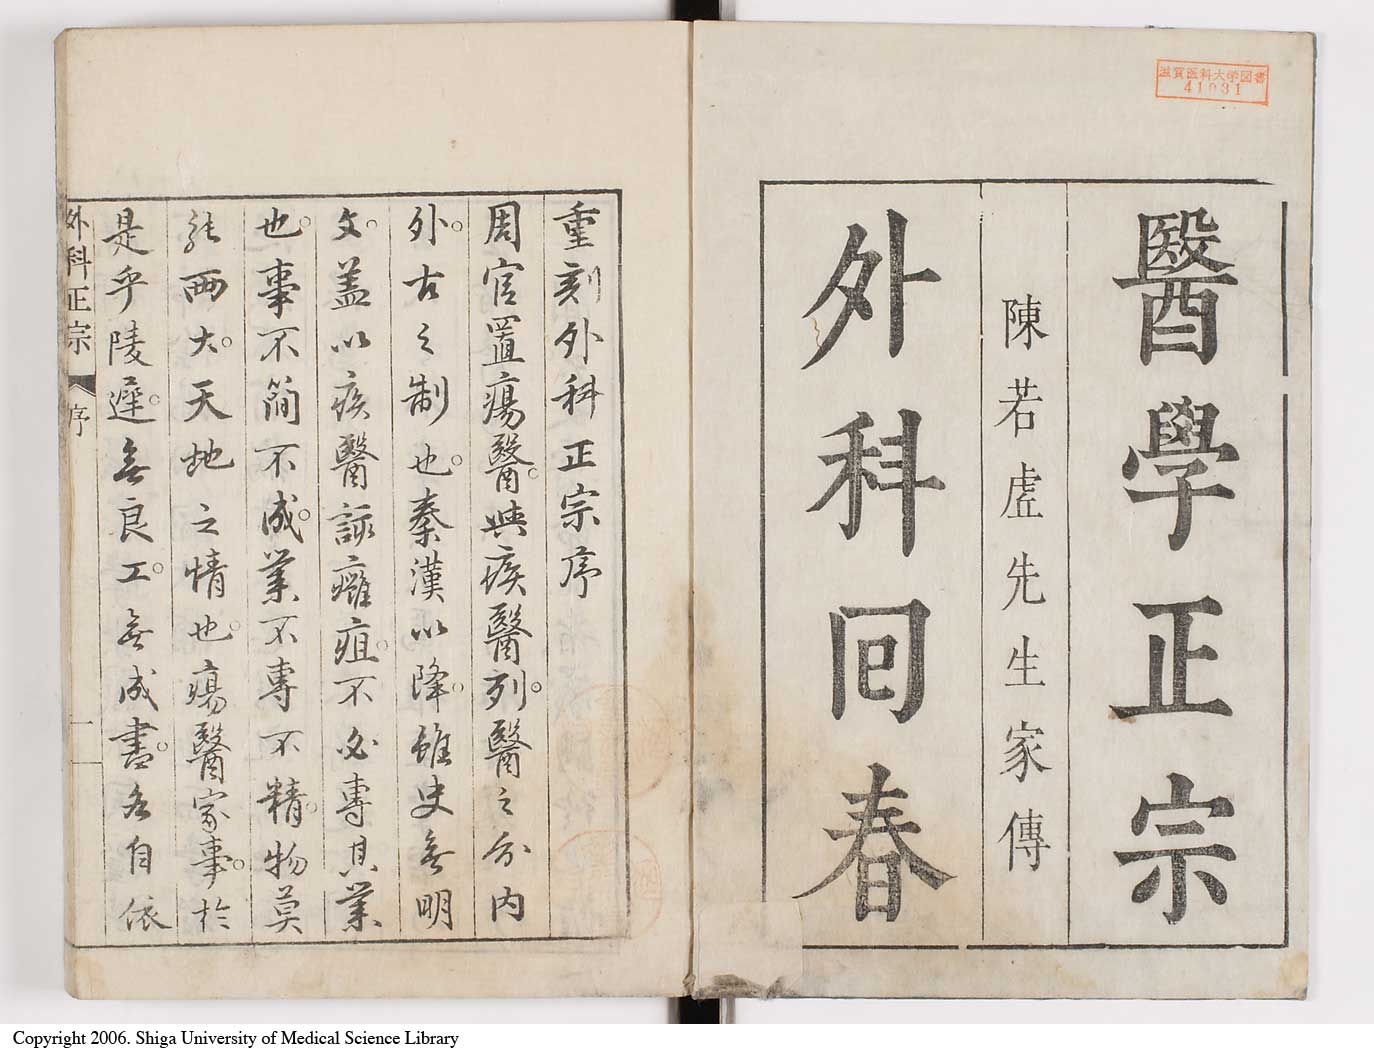 滋賀医科大学図書
41031
醫學正宗
陳若虛先生家傳
外科回春
重刻外科正宗序
周官置瘍醫。與疾醫列。醫之分內
外。古之制也。秦漢以降。雖史無明
文。蓋以疾醫諒癰疽。不必專其業
也。事不簡不成。業不專不精。物莫
能兩大。天地之情也。瘍醫家事。於
是乎陵遲。無良工。無成書。各自依
外科正宗
序
一
Copyright 2006. Shiga University of Medical Science Library